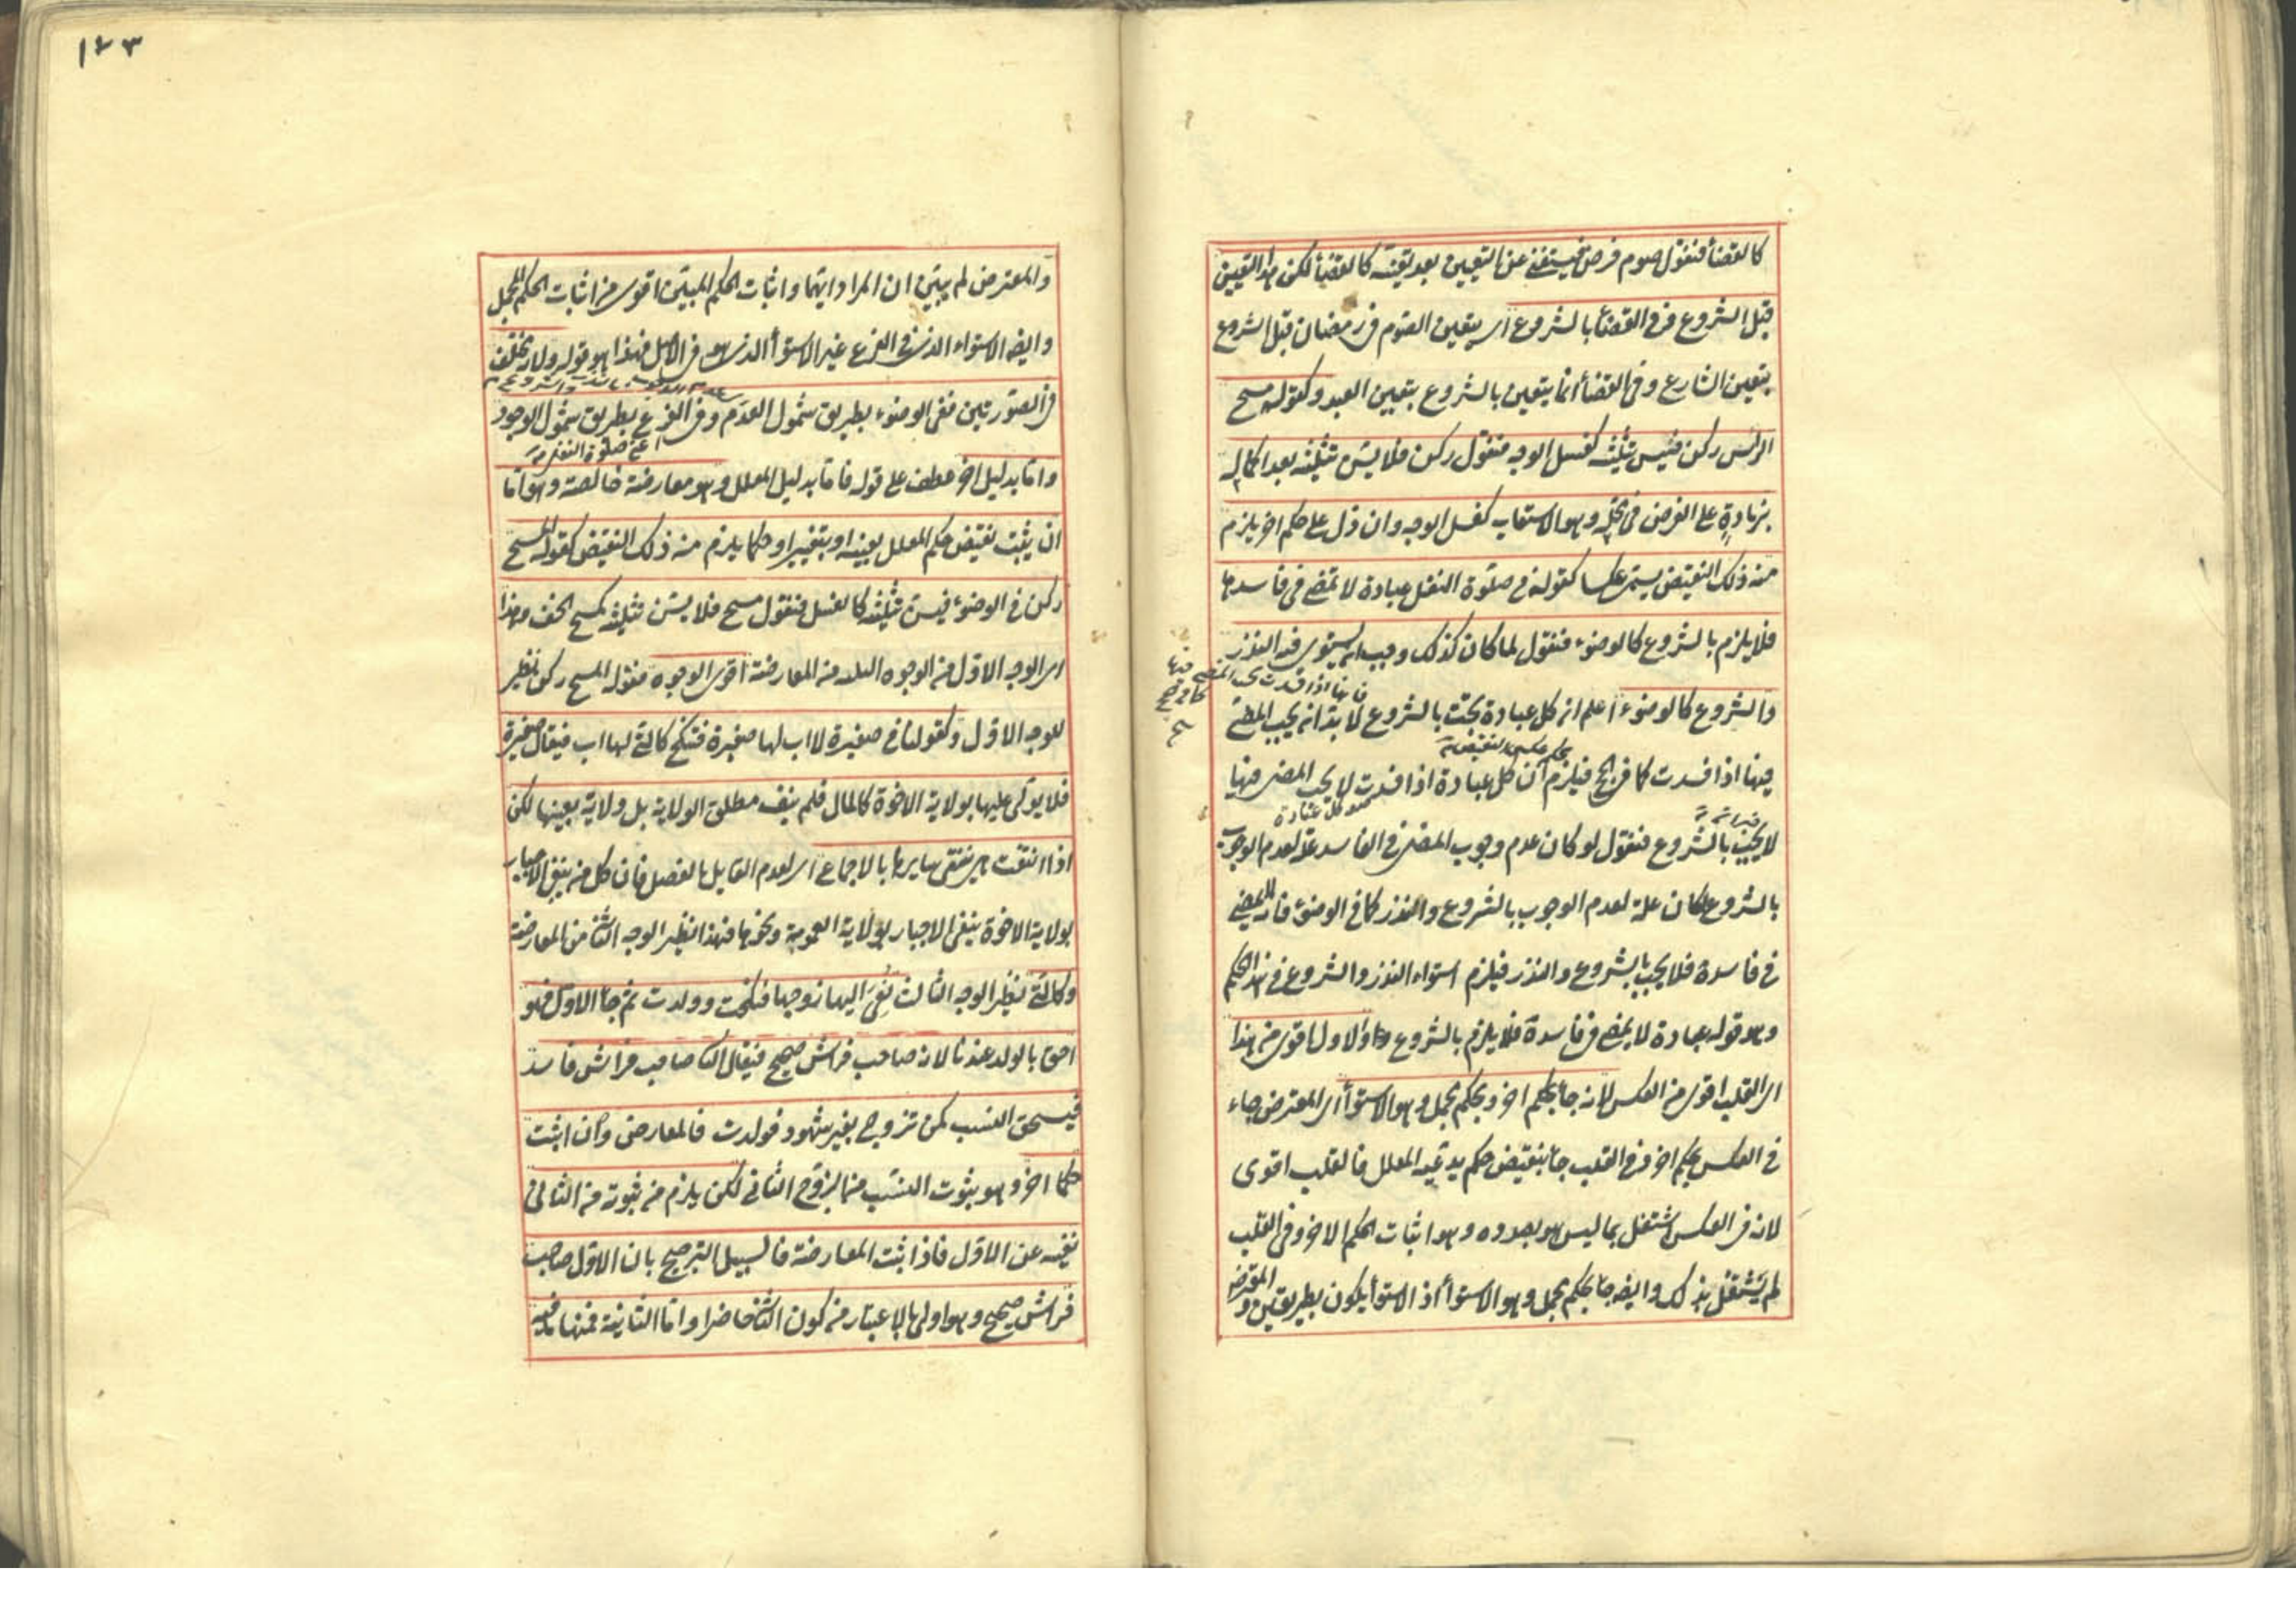 كالقضأ فنقول صوم فرض فيستغنى عن التعيين بعد تعينه كالقضأ لكن هذا التعيين
قبل الشروع وفى القضأ بالشروع اى يتعين الصوم فى رمضان قبل الشروع
بتعيين الشارع وفى القضأ انما يتعين بالشروع بتعيين العبد وكقوله مسح
الرأس ركن فيسن تثليثه كغسل الوجه فنقول ركن فلا يسن تثليثه بعد اكماله
بزيادة على الفرض فى محله وهو الاستيعاب كغسل الوجه وان دل على حكم اخر يلزم
منه ذلك النقيض يسمى عكسا كقوله فى صلوة النفل عبادة لا تمضى فى فاسدها
فلا يلزم بالشروع كالوضوء فنقول لما كان كذلك وجب ان يستوى فيه النذر
والشروع كالوضوء اعلم ان كل عبادة تجب بالشروع لا بد انه يجب المضى
فيها اذا فسدت كما فى الحج فيلزم ان كل عبادة اذا فسدت لا يجب المضى فيها
لا يجب بالشروع فنقول لو كان عدم وجوب المضى فى الفاسد علة لعدم الوجوب
بالشروع لكان علة لعدم الوجوب بالشروع والنذر كما فى الوضوء فانه لا يمضى
فى فاسدة فلا يجب بالشروع والنذر فيلزم استواء النذر والشروع فى هذا الحكم
وهو قوله عبادة لا يمضى فى فاسدة فلا يلزم بالشروع والاول اقوى من هذا
اى القلب اقوى من العكس لانه جأ بحكم اخر وبحكم مجمل وهو الاستوأ اى المعترض جاء
فى العكس بحكم اخر وفى القلب جأ بنقيض حكم يدعيه المعلل فالقلب اقوى
لانه فى العكس اشتغل بما ليس هو بصدده وهو اثبات الحكم الاخر وفى القلب
لم يشتغل بذلك وايضا جأ بحكم مجمل وهو الاستوأ اذ الاستوأ يكون بطريقين
١٤٣
والمعترض لم يبين ان المراد ايهما واثبات الحكم المبين اقوى من اثبات الحكم المجمل
وايضا الاستواء الذى فى الفرع غير الاستوأ الذى هو فى الاصل فهذا هو قوله ولانه مختلف
فى الصورتين ففى الوضوء بطريق شمول العدم وفى الفرع بطريق شمول الوجود
اعنى صلوة النفل
واما بدليل اخر عطف على قوله فاما بدليل المعلل وهو معارضة خالصة وهو اما
ان يثبت نقيض حكم المعلل بعينه او بتغيير او حكما يلزم منه ذلك النقيض كقوله المسح
ركن فى الوضوء فيسن تثليثه كالغسل فنقول مسح فلا يسن تثليثه كمسح الخف وهذا
اى الوجه الاول من الوجوه الثلثة من المعارضة اقوى الوجوه فقوله المسح ركن نظير
للوجه الاول وكقولنا فى صغيرة لا اب لها صغيرة فتنكح كالتى لها اب فيقال صغيرة
فلا يولى عليها بولاية الاخوة كالمال فلم ينف مطلق الولاية بل ولاية بعينها لكن
اذا انتفت هى ينتفى سايرها بالاجماع اى لعدم القايل بالفصل فان كل من ينفى الاجبار
بولاية الاخوة ينفى الاجبار بولاية العمومة ونحوها فهذا نظير الوجه الثانى من المعارضة
وكالتى نظير الوجه الثالث نعى اليها زوجها فنكحت وولدت ثم جأ الاول فهو
احق بالولد عندنا لانه صاحب فراش صحيح فيقال الثانى صاحب فراش فاسد
فيستحق النسب كمن تزوج بغير شهود فولدت فالمعارض وان اثبت
حكما اخر وهو ثبوت النسب من الزوج الثانى لكن يلزم من ثبوته من الثانى
نفيه عن الاول فاذا ثبت المعارضة فالسبيل الترجيح بان الاول صاحب
فراش صحيح وهو اولى بالاعتبار من كون الثانى حاضرا واما الثانية فمنها ما فيه